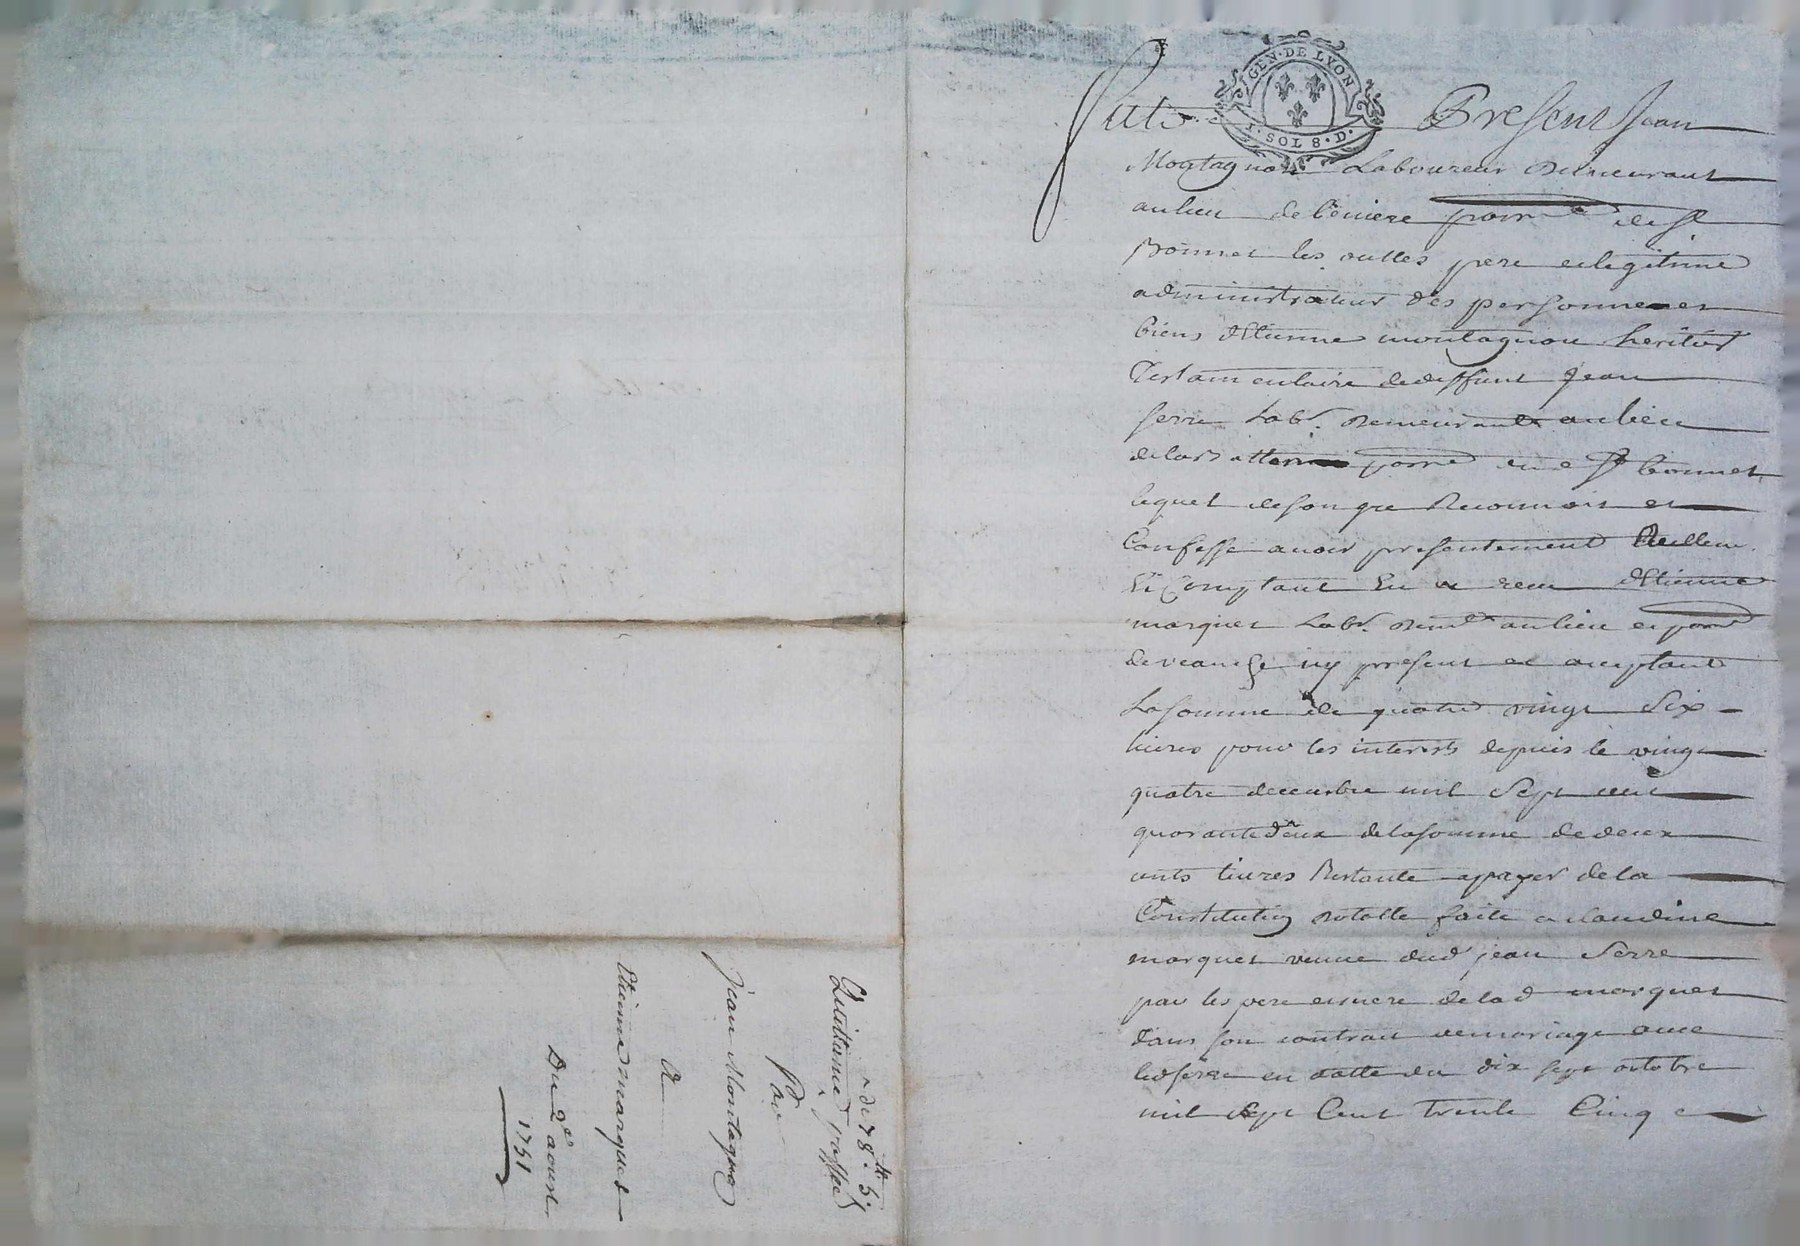 GEN · DE LYON
1 · SOL 8 · D ·
Fut Present Jean
Montagnon Laboureur Demeurant
au lieu de parr de St
Bonnet les oulles pere et legitime
administrateur des personne et
biens d'Etienne montagnon heritier
Testamentaire de deffunt Jean
serre Labr. demeurant au lieu
parr de St bonnet
lequel de son gre Reconnois et
Confesse avoir presentement Reellemt.
Et Comptant Eu et receu d'Etienne
marquet Labr. demt au lieu et parr
de veauche icy present et acceptant
La somme de quatre vingt Six
livres pour les interests depuis le vingt
quatre decembre mil Sept cent
quarante deux de la somme de deux
cents livres Restante a payer de la
Constitution dotalle faite a claudine
marquet veuve dud jean Serre
par les pere et mere de lad marquet
dans son contrat de mariage avec
led serre en datte du dix sept octobre
mil sept Cent Trente Cinq
Quittance passée
Par
Jean Montagnon
A
Etienne marquet
Du 2e aoust
1751